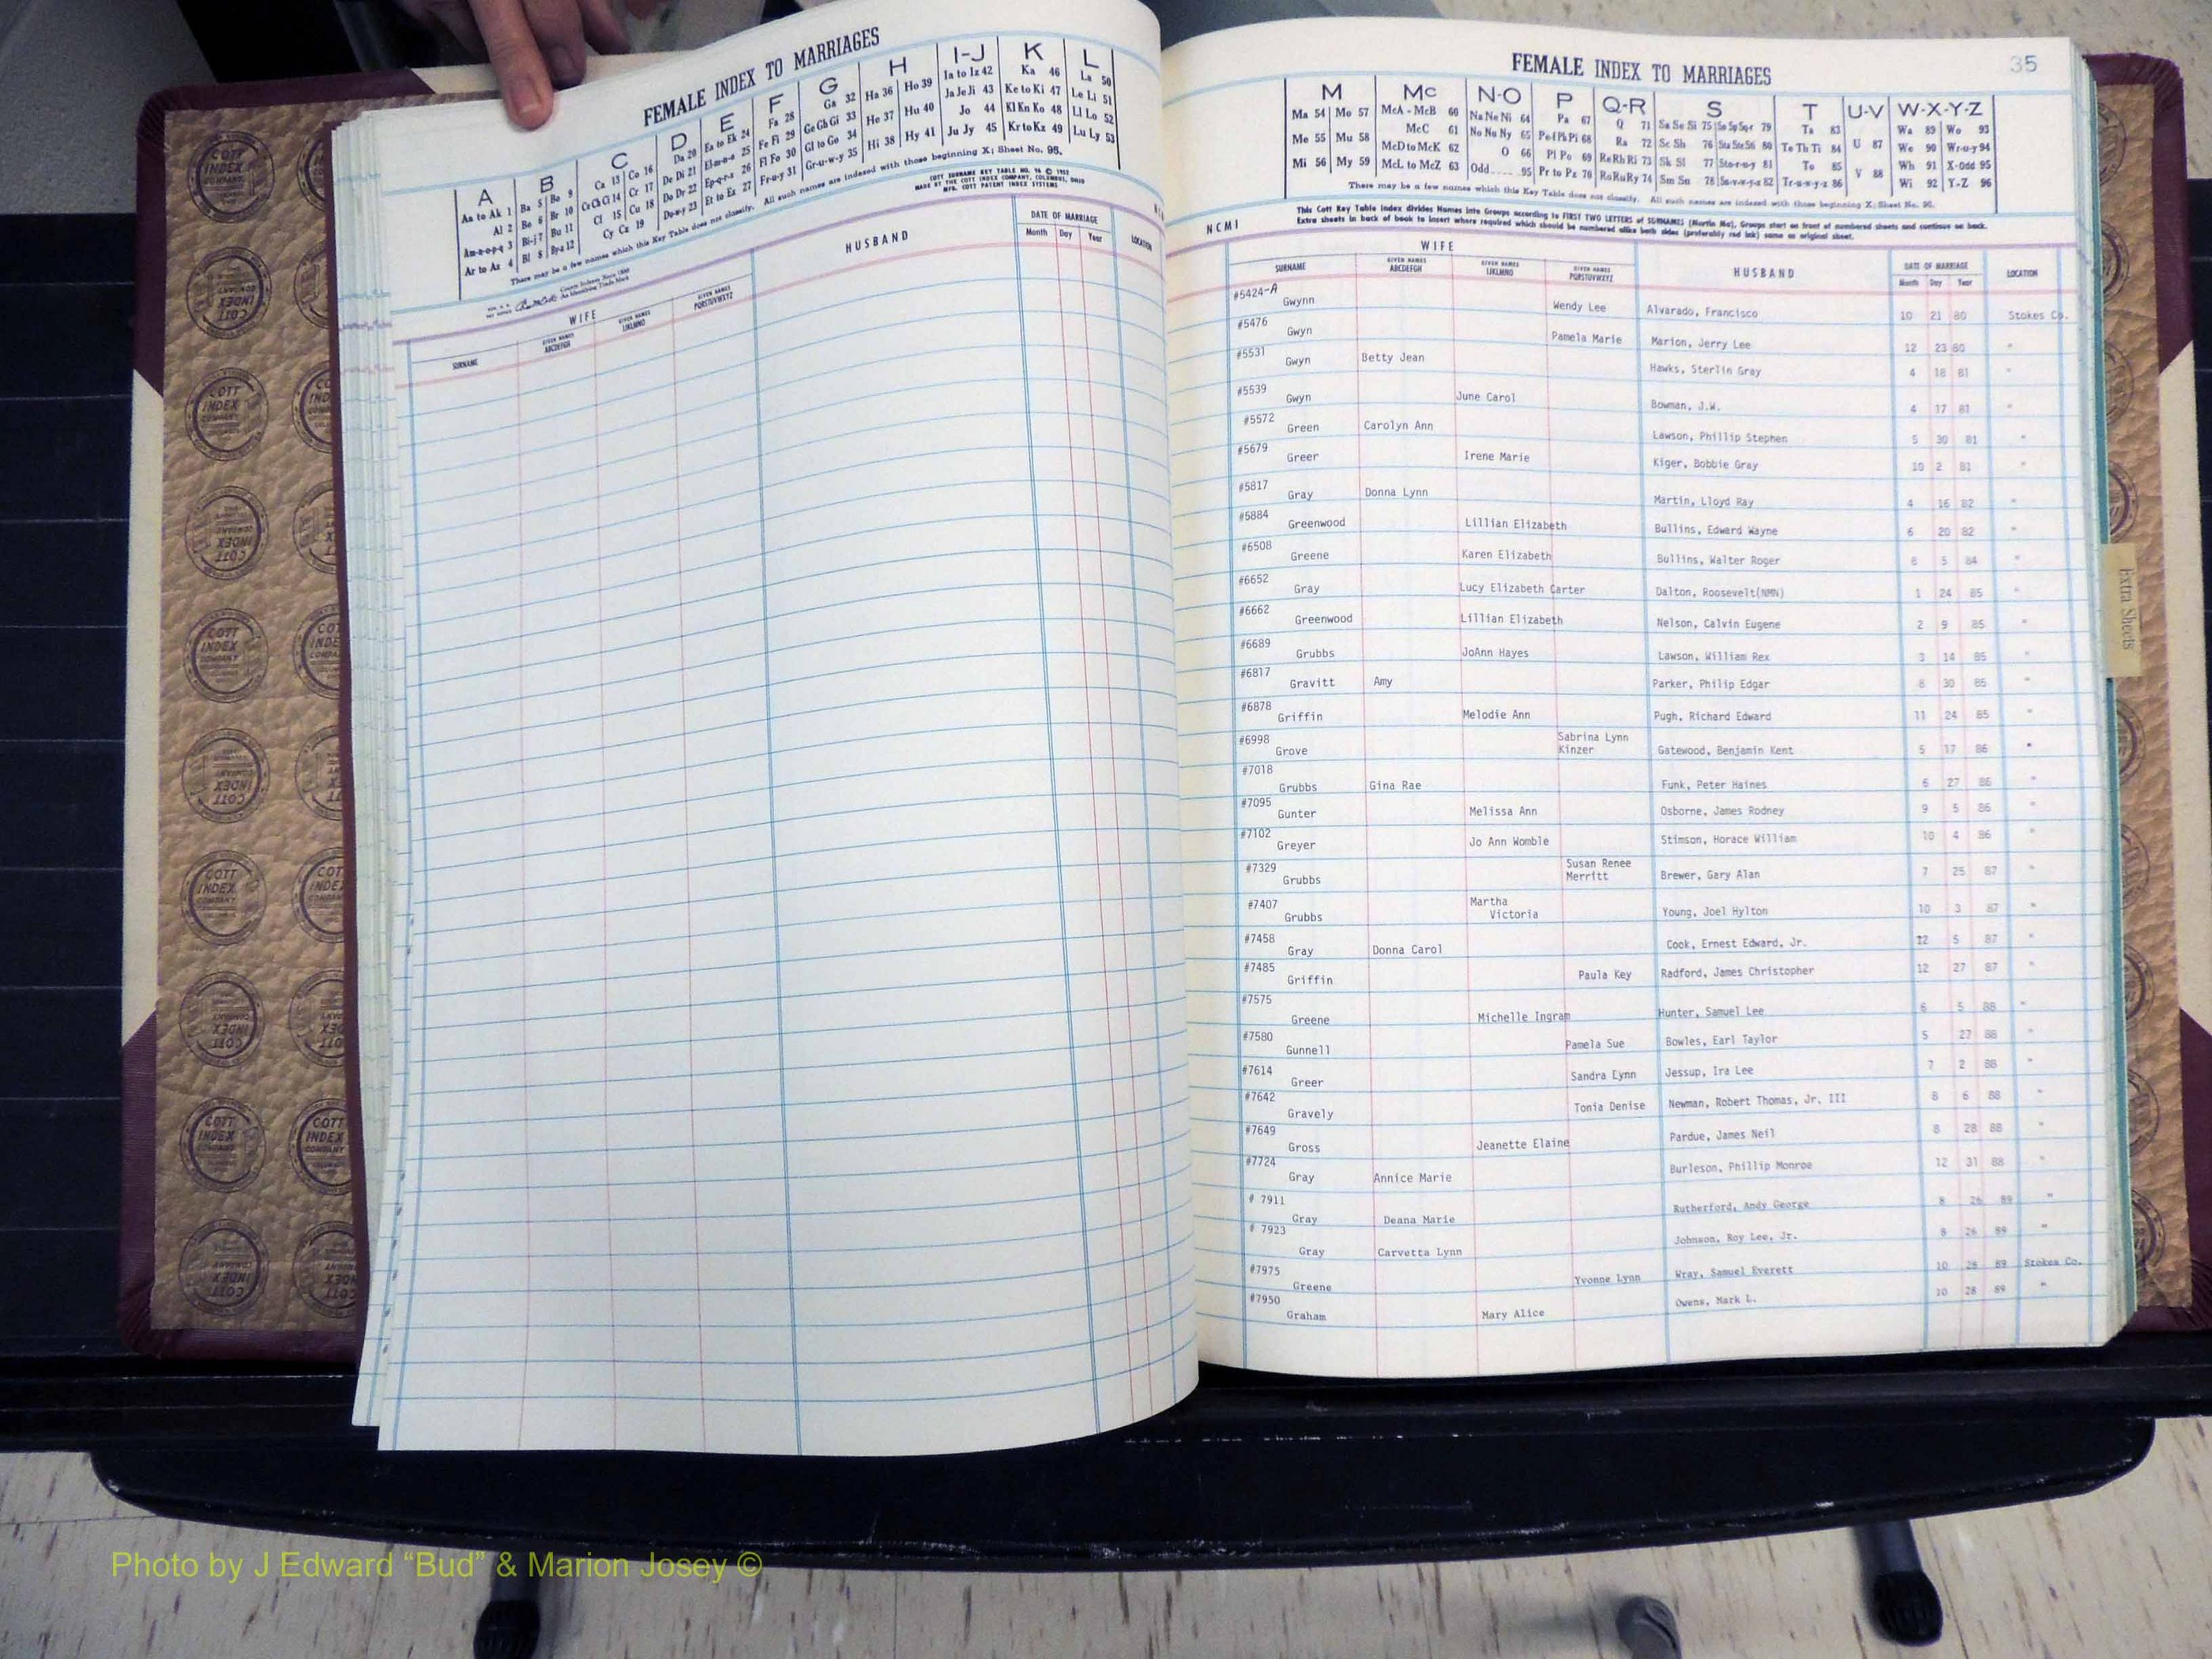 FEMALE INDEX TO MARRIAGES
A B C D E F G H I-J K L
Aa to Ak 1 Ba 5 Bo 9 Ca 13 Co 16 Da 20 Ea to Ek 24 Fa 28 Ga 32 Ha 36 Ho 39 Ia to Iz 42 Ka 46 La 50
Al 2 Be 6 Br 10 CeChCi 14 Cr 17 De Di 21 El-m-n-o 25 Fe Fi 29 Ge Gh Gi 33 He 37 Hu 40 Ja Je Ji 43 Ke to Ki 47 Le Li 51
Am-n-o-p-q 3 Bi-j 7 Bu 11 Cl 15 Cu 18 Do Dr 22 Ep-q-r-s 26 Fl Fo 30 Gl to Go 34 Hi 38 Hy 41 Jo 44 Kl Kn Ko 48 Ll Lo 52
Ar to Az 4 Bl 8 By-z 12 Cy Cz 19 Du-w-y 23 Et to Ex 27 Fr-u-y 31 Gr-u-w-y 35 Ju Jy 45 Kr to Kz 49 Lu Ly 53
There may be a few names which this Key Table does not classify. All such names are indexed with those beginning X; Sheet No. 95.
COTT SURNAME KEY TABLE NO. 96 © 1952
MADE BY THE COTT INDEX COMPANY, COLUMBUS, OHIO
MFG. COTT PATENT INDEX SYSTEMS
WIFE HUSBAND DATE OF MARRIAGE LOCATION
SURNAME GIVEN NAMES ABCDEFGH GIVEN NAMES IJKLMNO GIVEN NAMES PQRSTUVWXYZ Month Day Year
FEMALE INDEX TO MARRIAGES 35
M Mc N-O P Q-R S T U-V W-X-Y-Z
Ma 54 Mo 57 McA - McB 60 Na Ne Ni 64 Pa 67 Q 71 Sa Se Si 75 So Sp Sq-r 79 Ta 83 U 87 Wa 89 Wo 93
Me 55 Mu 58 McC 61 No Nu Ny 65 Pe-f Ph Pi 68 Ra 72 Sc Sh 76 Sta Ste S6 80 Te Th Ti 84 V 88 We 90 Wr-u-y 94
Mi 56 My 59 McD to McK 62 O 66 Pl Po 69 Re Rh Ri 73 Sk Sl 77 Sto-r-u-y 81 To 85 Wh 91 X-Odd 95
McL to McZ 63 Odd 95 Pr to Pz 70 Ro Ru Ry 74 Sm Sn 78 Su-v-w-y-z 82 Tr-u-w-y-z 86 Wi 92 Y-Z 96
There may be a few names which this Key Table does not classify. All such names are indexed with those beginning X; Sheet No. 95.
This Cott Key Table Index divides Names into Groups according to FIRST TWO LETTERS of SURNAMES (Martin Ma), Groups start on front of numbered sheets and continue on back.
Extra sheets in back of book to insert where required which should be numbered alike both sides (preferably red ink) same as original sheet.
NCMI
WIFE HUSBAND DATE OF MARRIAGE LOCATION
SURNAME GIVEN NAMES ABCDEFGH GIVEN NAMES IJKLMNO GIVEN NAMES PQRSTUVWXYZ Month Day Year
#5424-A Gwynn Wendy Lee Alvarado, Francisco 10 21 80 Stokes Co.
#5476 Gwyn Pamela Marie Marion, Jerry Lee 12 23 80 "
#5531 Gwyn Betty Jean Hawks, Sterlin Gray 4 18 81 "
#5539 Gwyn June Carol Bowman, J.W. 4 17 81 "
#5572 Green Carolyn Ann Lawson, Phillip Stephen 5 30 81 "
#5679 Greer Irene Marie Kiger, Bobbie Gray 10 2 81 "
#5817 Gray Donna Lynn Martin, Lloyd Ray 4 16 82 "
#5884 Greenwood Lillian Elizabeth Bullins, Edward Wayne 6 20 82 "
#6508 Greene Karen Elizabeth Bullins, Walter Roger 8 5 84 "
#6652 Gray Lucy Elizabeth Carter Dalton, Roosevelt(NMN) 1 24 85 "
#6662 Greenwood Lillian Elizabeth Nelson, Calvin Eugene 2 9 85 "
#6689 Grubbs JoAnn Hayes Lawson, William Rex 3 14 85 "
#6817 Gravitt Amy Parker, Philip Edgar 8 30 85 "
#6878 Griffin Melodie Ann Pugh, Richard Edward 11 24 85 "
#6998 Grove Sabrina Lynn Kinzer Gatewood, Benjamin Kent 5 17 86 "
#7018 Grubbs Gina Rae Funk, Peter Haines 6 27 86 "
#7095 Gunter Melissa Ann Osborne, James Rodney 9 5 86 "
#7102 Greyer Jo Ann Womble Stimson, Horace William 10 4 86 "
#7329 Grubbs Susan Renee Merritt Brewer, Gary Alan 7 25 87 "
#7407 Grubbs Martha Victoria Young, Joel Hylton 10 3 87 "
#7458 Gray Donna Carol Cook, Ernest Edward, Jr. 12 5 87 "
#7485 Griffin Paula Key Radford, James Christopher 12 27 87 "
#7575 Greene Michelle Ingram Hunter, Samuel Lee 6 5 88 "
#7580 Gunnell Pamela Sue Bowles, Earl Taylor 5 27 88 "
#7614 Greer Sandra Lynn Jessup, Ira Lee 7 2 88 "
#7642 Gravely Tonia Denise Newman, Robert Thomas, Jr. III 8 6 88 "
#7649 Gross Jeanette Elaine Pardue, James Neil 8 28 88 "
#7724 Gray Annice Marie Burleson, Phillip Monroe 12 31 88 "
# 7911 Gray Deana Marie Rutherford, Andy George 8 26 89 "
# 7923 Gray Carvetta Lynn Johnson, Roy Lee, Jr. 8 26 89 "
#7975 Greene Yvonne Lynn Wray, Samuel Everett 10 28 89 Stokes Co.
#7950 Graham Mary Alice Owens, Mark L. 10 28 89 "
Extra Sheets
COTT INDEX COMPANY
Photo by J Edward “Bud” & Marion Josey ©